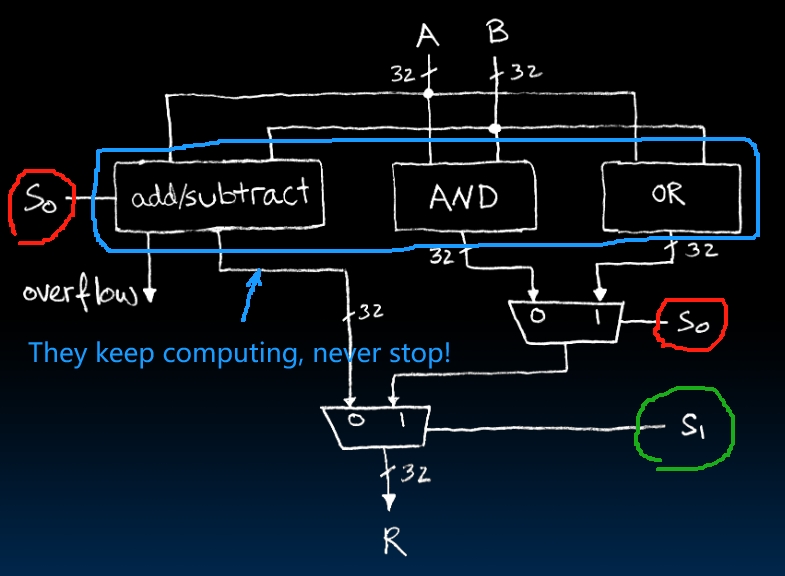 A B
32 32
S₀ add/subtract AND OR
32 32
overflow
0 1 S₀
32
They keep computing, never stop!
0 1 S₁
32
R